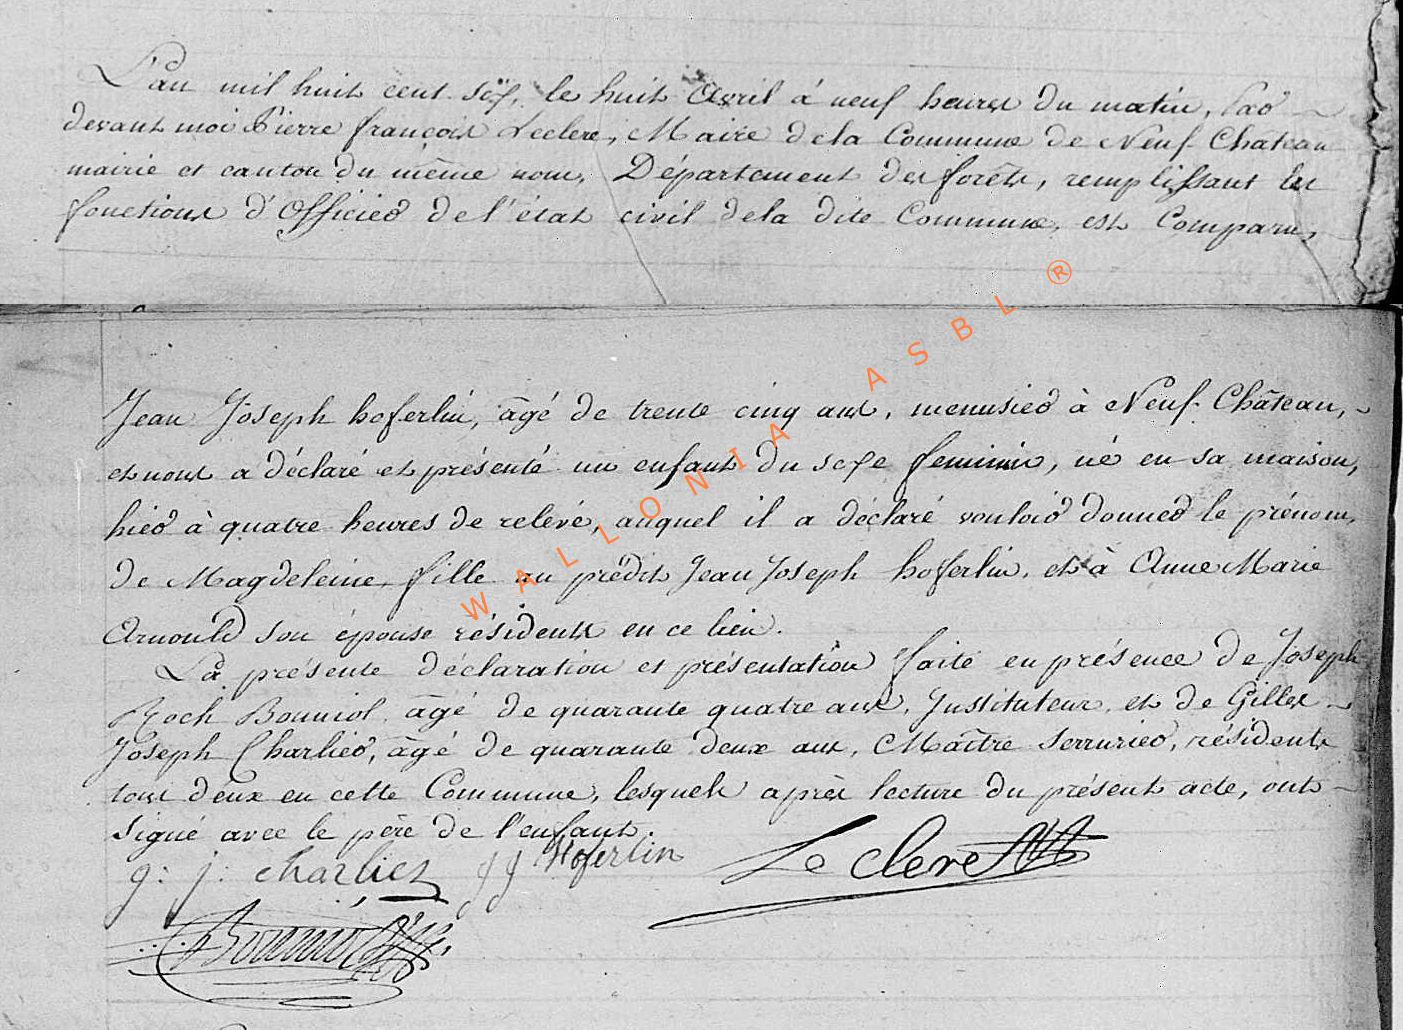 L'an mil huit cent sept, le huit avril à neuf heures du matin, Par
devant moi Pierre françois Leclere, Maire dela Commune de Neuf-Château
mairie et canton du même nom, Département des forêts, remplissant les
fonctions d'Officier de l'état civil dela dite Commune, est Comparu,
Jean Joseph hoferlin, âgé de trente cinq ans, menuisier à Neuf-Château,
et nous a déclaré et présenté un enfant du sexe feminin, né en sa maison,
hier à quatre heures de relevé, auquel il a déclaré vouloir donner le prénom,
de Magdeleine, fille au prédit Jean Joseph hoferlin, et à Anne Marie
Arnould son épouse résidents en ce lieu.
La présente déclaration et présentation faite en présence de Joseph
Roch Bonniol, âgé de quarante quatre ans, Instituteur, et de Gilles
Joseph Charlier, âgé de quarante deux ans, Maître serrurier, résidents
tous deux en cette Commune, lesquels après lecture du présent acte, ont
signé avec le père de l'enfant.
g: j: charlier jj Hoferlin Le clere
Bonniol
WALLONIA ASBL ®